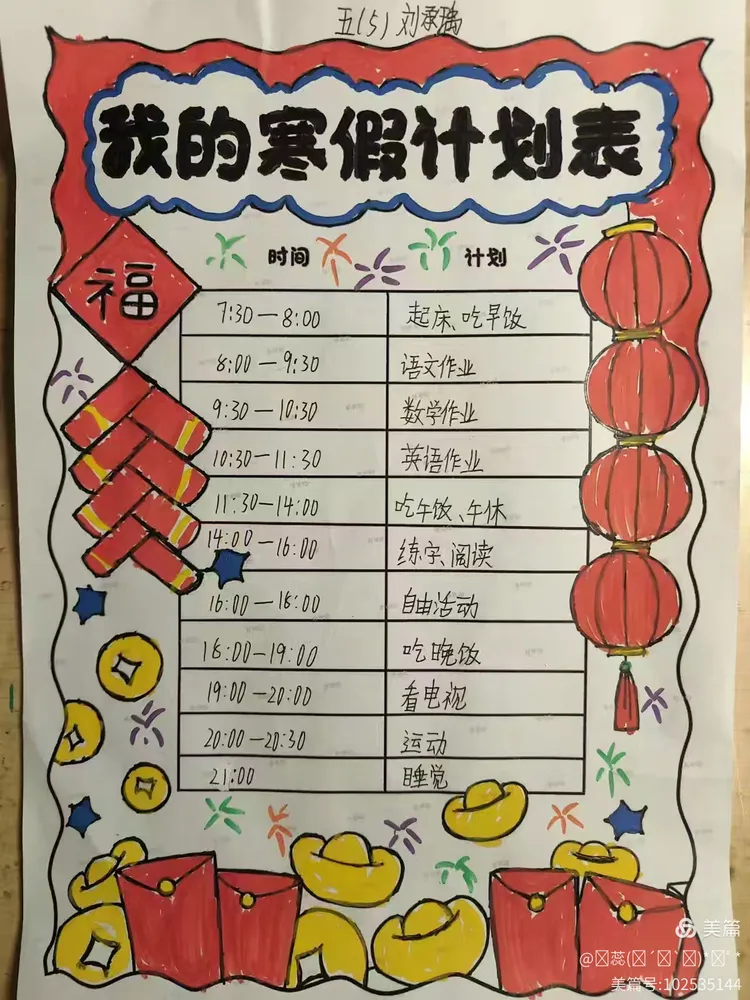 五(5) 刘承瑞
我的寒假计划表
时间 计划
福
7:30—8:00 起床、吃早饭
8:00—9:30 语文作业
9:30—10:30 数学作业
10:30—11:30 英语作业
11:30—14:00 吃午饭、午休
14:00—16:00 练字、阅读
16:00—18:00 自由活动
18:00—19:00 吃晚饭
19:00—20:00 看电视
20:00—20:30 运动
21:00 睡觉
美篇
美篇号:102535144